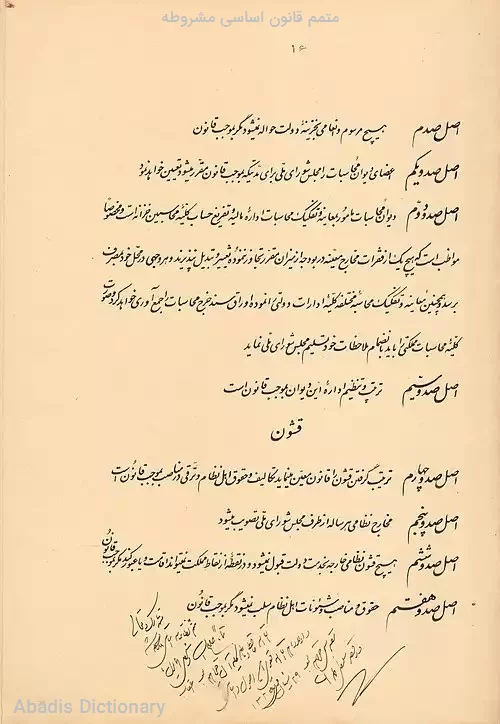 متمم قانون اساسی مشروطه
۱۶
اصل صدم هیچ مرسوم و انعامی بخزینهٔ دولت حواله نمیشود مگر بموجب قانون
اصل صد و یکم اعضای دیوان محاسبات را مجلس شورای ملی برای مدتیکه بموجب قانون مقرر میشود تعیین خواهد نمود
اصل صد و دوم دیوان محاسبات مأمور بمعاینه و تفکیک محاسبات ادارهٔ مالیه و تفریغ حساب کلیهٔ محاسبین خزانه است و مخصوصاً
مواظب است که هیچیک از فقرات مخارج معینه در بودجه از میزان مقرر تجاوز ننموده تغییر و تبدیل نپذیرند و هر وجهی در محل خود بمصرف
برسد و همچنین معاینه و تفکیک محاسبهٔ مختلفهٔ کلیهٔ ادارات دولتی را نموده اوراق سند خرج محاسبات را جمع آوری خواهد کرد و صورت
کلیهٔ محاسبات مملکتی را باید بانضمام ملاحظات خود تسلیم مجلس شورای ملی نماید
اصل صد و سیم ترتیب و تنظیم و ادارهٔ این دیوان بموجب قانون است
قشون
اصل صد و چهارم ترتیب گرفتن قشون را قانون معین مینماید تکالیف و حقوق اهل نظام و ترقی در مناصب بموجب قانون است
اصل صد و پنجم مخارج نظامی هر ساله از طرف مجلس شورای ملی تصویب میشود
اصل صد و ششم هیچ قشون نظامی خارجه بخدمت دولت قبول نمیشود و در نقطهٔ از نقاط مملکت نمیتواند اقامت و یا عبور کند مگر بموجب قانون
اصل صد و هفتم حقوق و مناصب و شئونات اهل نظام سلب نمیشود مگر بموجب قانون
Abadis Dictionary